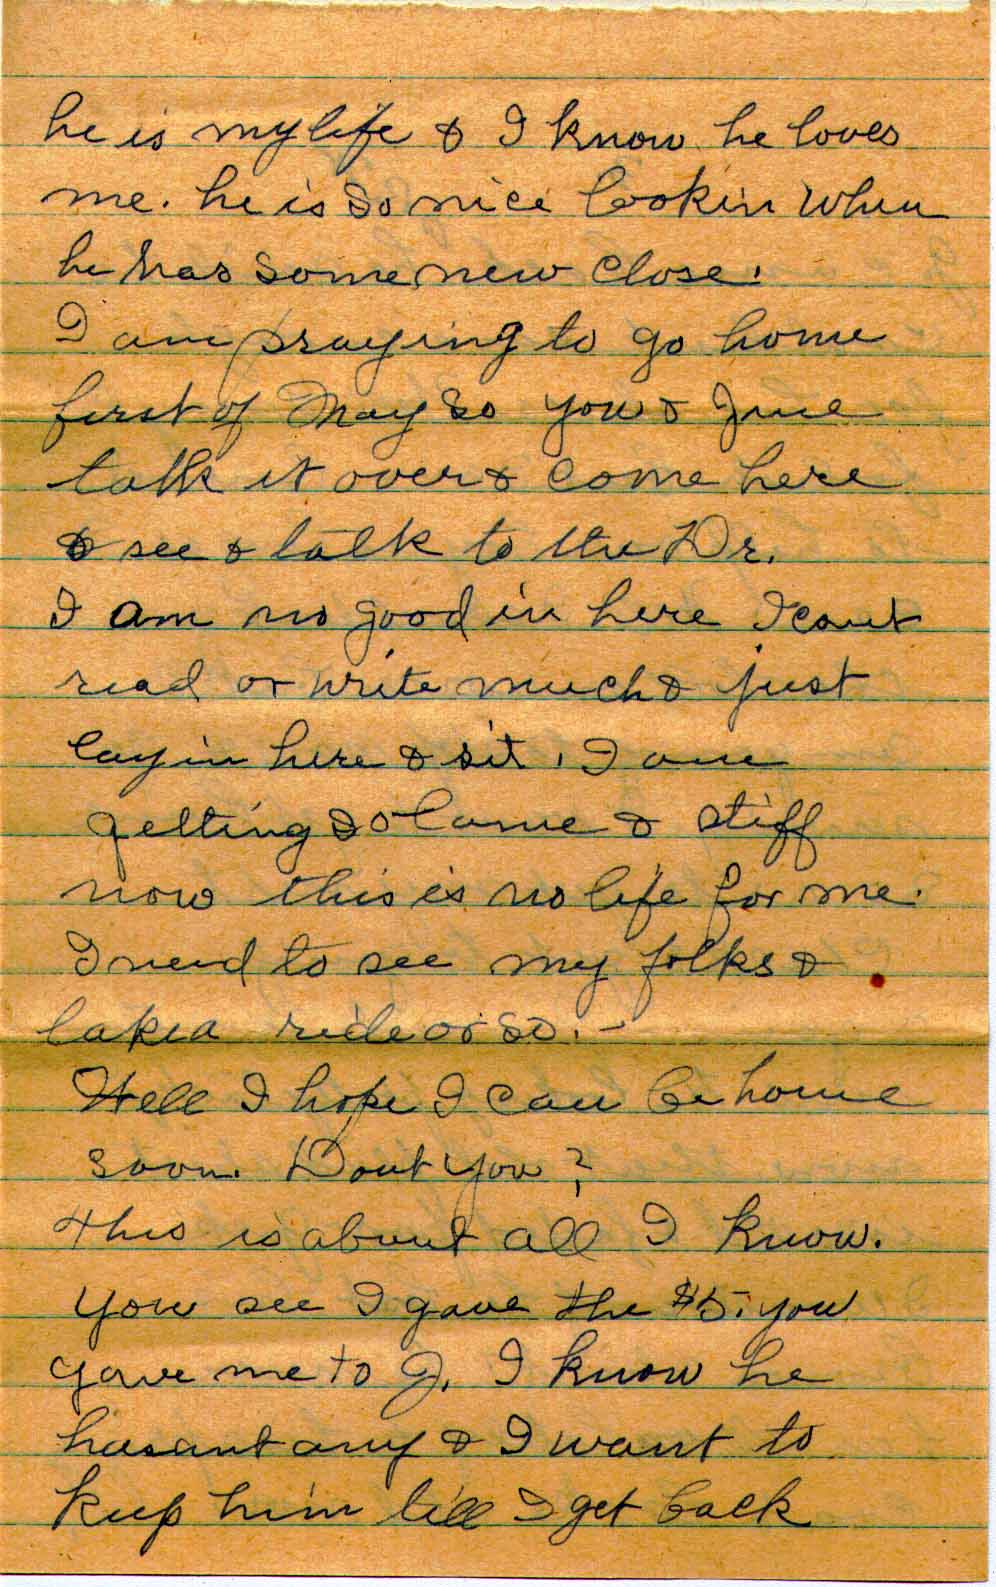 he is my life & I know he loves
me. he is so nice lookin when
he has some new close.
I am praying to go home
first of May so you & June
talk it over & come here
& see & talk to the Dr.
I am no good in here I cant
read or write much & just
layin here & sit. I am
getting so lame & stiff
now this is no life for me.
I need to see my folks &
take a ride or so. -
Well I hope I can be home
soon. Dont you?
This is about all I know.
You see I gave the $5. you
gave me to J. I know he
hasant any & I want to
keep him till I get back